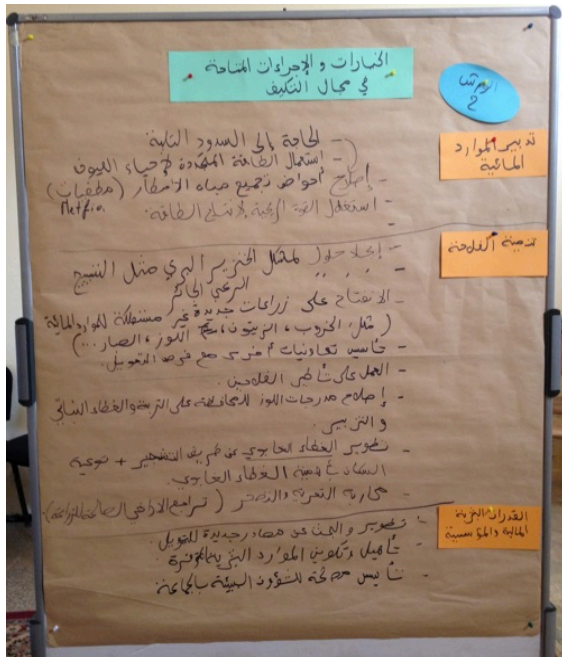 الخيارات و الإجراءات المتاحة
في مجال التكيف
الورشة
2
تدبير الموارد
المائية
- الحاجة إلى السدود التلية
- إستعمال الطاقة المتجددة لإحياء
- إصلاح أحواض تجميع مياه الأمطار (مطفيات)
Metfia.
- استغلال القوة الريحية لإنتاج الطاقة.
تنمية الفلاحة
- إيجاد حلول لمشكل الخنزير البري مثل التسييج
- الرعي الجائر
- الانفتاح على زراعات جديدة غير مستهلكة للموارد المائية
(مثل: الخروب، الزيتون، اللوز، الصبار...)
- تأسيس تعاونيات أخرى مع فرص التمويل.
- العمل على تأطير الفلاحين.
- إصلاح مدرجات اللوز للمحافظة على التربة والغطاء النباتي
و التزبير.
- تطوير الغطاء الغابوي عن طريق التشجير + توعية
السكان بأهمية الغطاء الغابوي.
- محاربة التعرية والتصحر (تراجع الأراضي الصالحة للزراعة).
القدرات البشرية
المالية والمؤسسية
- تطوير و البحث عن مصادر جديدة للتمويل.
- تأهيل وتكوين الموارد البشرية المتوفرة.
- تأسيس مصلحة للشؤون البيئية بالجماعة